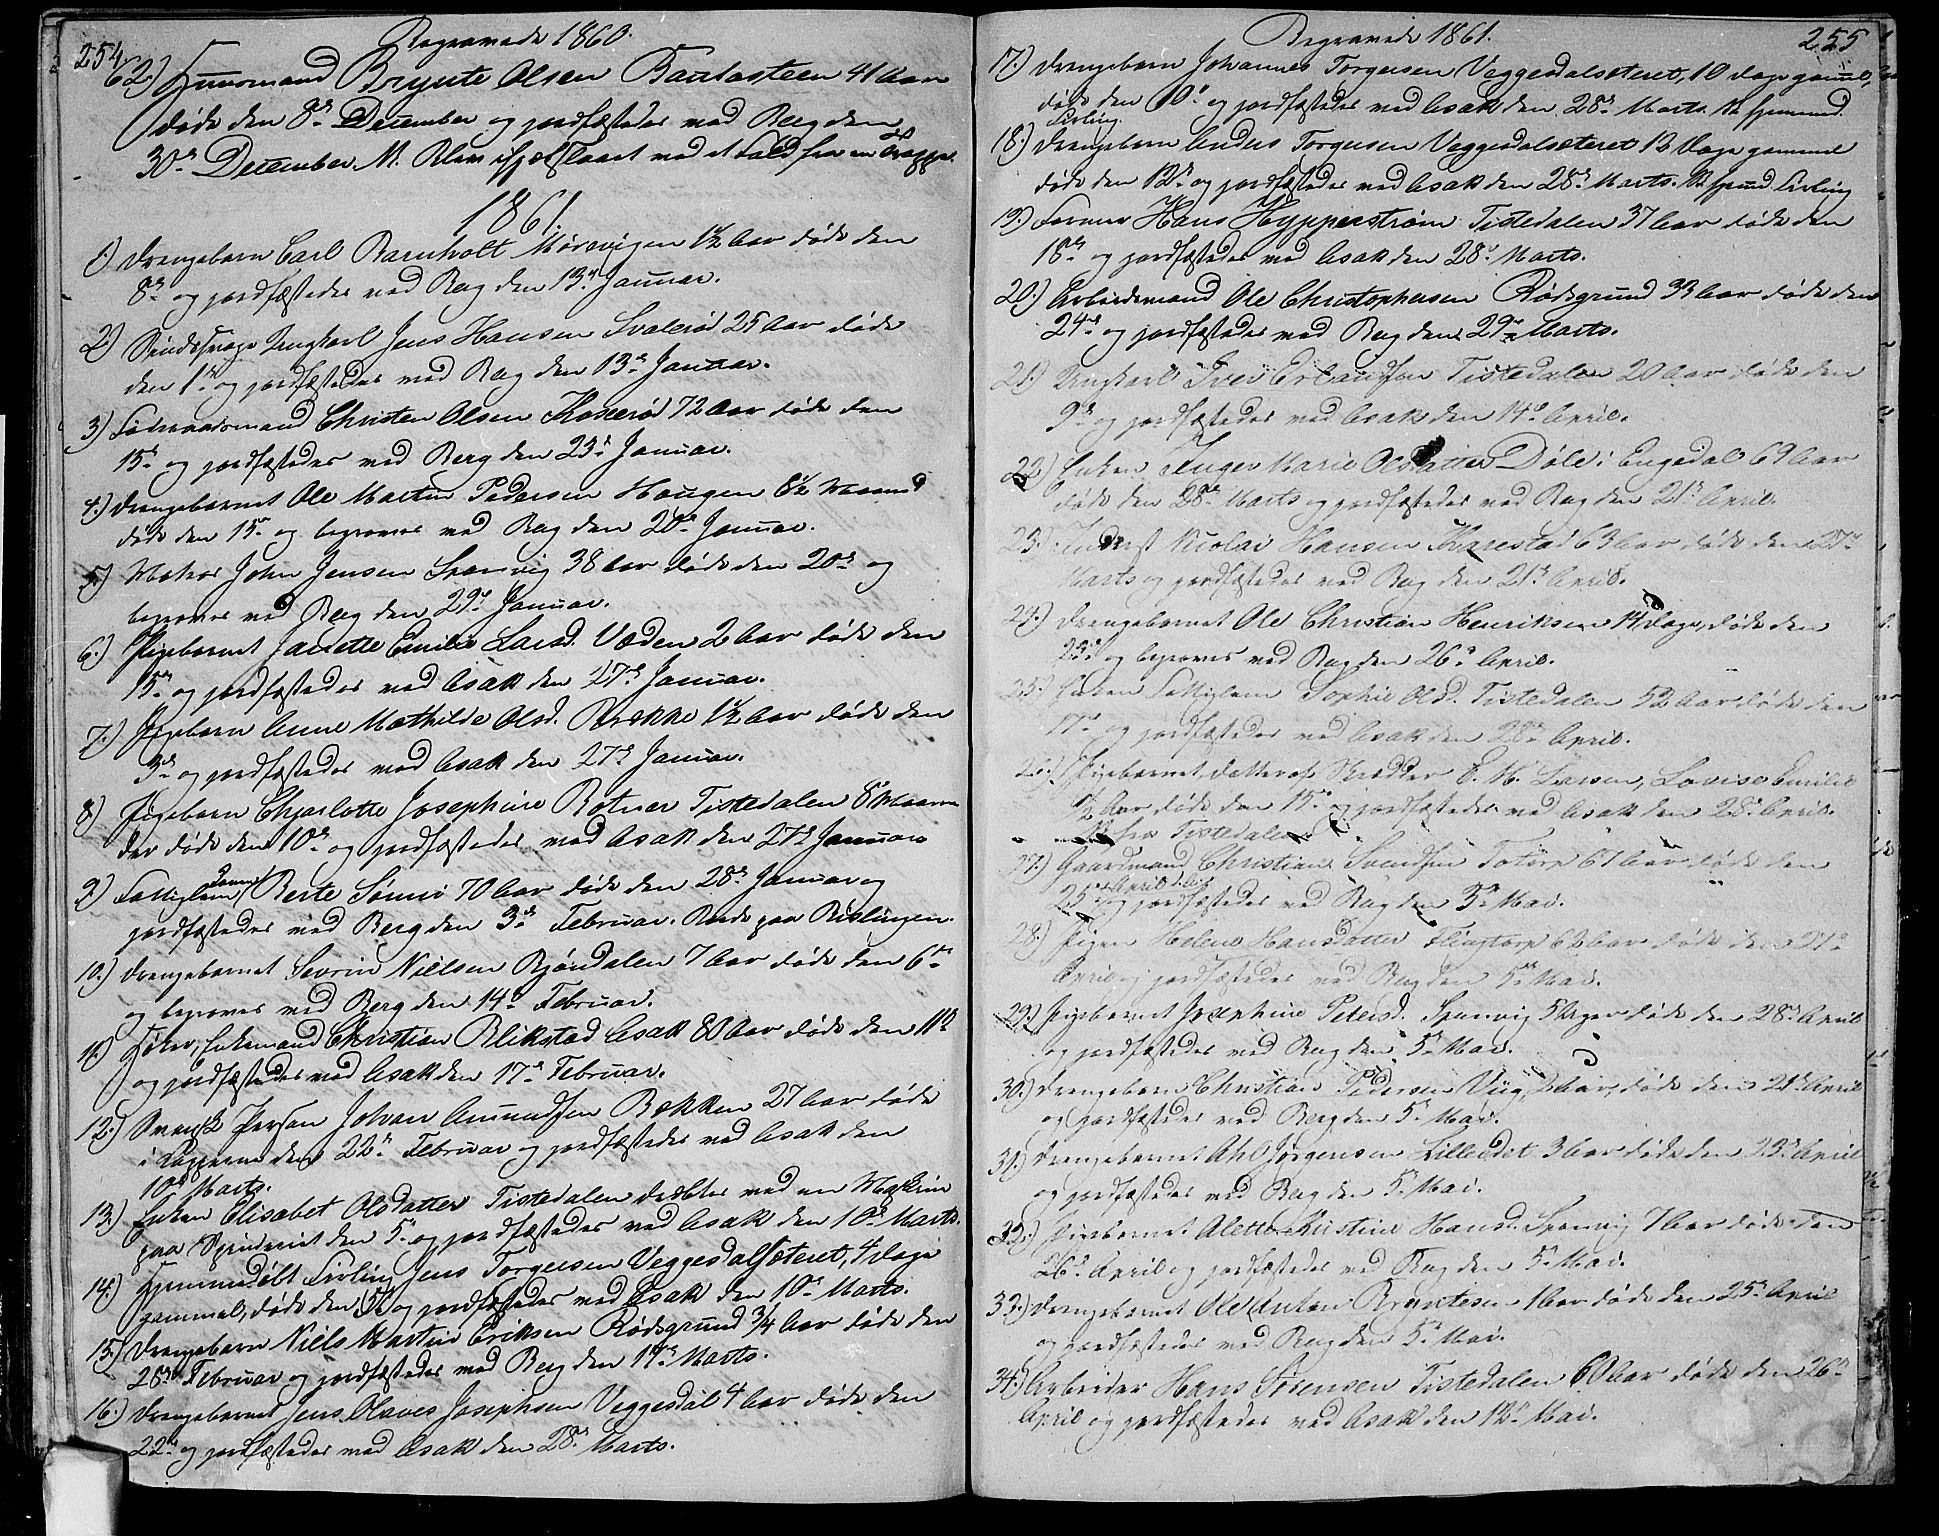 254
Begravede 1860.
62.) Huusmand Brynte Olsen Bautasteen 41 Aar
døde den 8de December og jordfæstedes ved Berg den
30te December. N. Blev ihjælslaaet ved et Fald fra en Trappe.
1861.
1.) Drengebarn Carl Barnholt Mørvigen 1½ Aar døde den
8de og jordfæstedes ved Berg den 13de Januar.
2.) Sindssvage Ungkarl Jens Hansen Svalerød 25 Aar døde
den 1ste og jordfæstedes ved Berg den 13de Januar.
3.) Føderaadsmand Christen Olsen Kosserød 72 Aar døde den
15de og jordfæstedes ved Berg den 23de Januar.
4.) Drengebarnet Ole Martin Pedersen Haugen 8½ Maaned
døde den 15de og begraves ved Berg den 20de Januar.
5.) Matros John Jensen Sponvig 38 Aar døde den 20de og
begraves ved Berg den 29de Januar.
6.) Pigebarnet Janette Emilie Larsd. Væden 2 Aar døde den
15de og jordfæstedes ved Asak den 27de Januar.
7.) Pigebarn Anne Mathilde Olsd. Brække 1½ Aar døde den
3de og jordfæstedes ved Asak den 27de Januar.
8.) Pigebarn Charlotte Josephine Botner Tistedalen 8 Maane-
der døde den 10de og jordfæstedes ved Asak den 27de Januar
9.) Fattiglem Berte Sonsø 70 Aar døde den 28de Januar og
jordfæstedes ved Berg den 3de Februar. Boede paa Rislingen.
10.) Drengebarnet Sevrin Nielsen Bjørndalen 7 Aar døde den 6te
og begraves ved Berg den 14de Februar.
11.) Enkemand Christian Blikstad Asak 80 Aar døde den 11te
og jordfæstedes ved Asak den 17de Februar.
12.) Svensk Person Johan Amundsen Bækken 27 Aar døde
i den 22de Februar og jordfæstedes ved Asak den
10de Marts.
13.) Enken Elisabet Olsdatter Tistedalen dræbtes ved en Maskin
paa Spinderiet den 5te og jordfæstedes ved Asak den 10de Marts.
14.) Hjemmedøbt Tvilling Jens Torgersen Veggesdalsæteret, 4 Dage
gammel, døde den 5te og jordfæstedes ved Asak den 10de Marts.
15.) Drengebarn Niels Martin Eriksen Rødsgrund 3/4 Aar døde den
28de Februar og jordfæstedes ved Berg den 17de Marts.
16.) Drengebarnet Jens Olaves Josephsen Veggesdal 4 Aar døde den
22de og jordfæstedes ved Asak den 28de Marts.
Begravede 1861.
255
17.) Drengebarn Johannes Torgersen Veggesdalsæteret, 10 Dage gammel,
døde den 10de og jordfæstedes ved Asak den 28de Marts. Hjemmed.
Tvilling.
18.) Drengebarn Anders Torgersen Veggesdalsæteret 12 Dage gammel
døde den 12te og jordfæstedes ved Asak den 28de Marts. Tvilling
19.) Former Hans Hypperstrøm Tistedalen 37 Aar døde den
18de og jordfæstedes ved Asak den 28de Marts.
20.) Arbeidsmand Ole Christophersen Rødsgrund 33 Aar døde den
24de og jordfæstedes ved Berg den 29de Marts.
21.) Ungkarl Iver Erlandsen Tistedalen 20 Aar døde den
9de og jordfæstedes ved Asak den 14de April.
22.) Enken Inger Marie Olsdatter Døle i Engedal 69 Aar
døde den 28de Marts og jordfæstedes ved Berg den 21de April.
23.) Inderst Nicolai Hansen Karrestad 63 Aar døde den 27de
Marts og jordfæstedes ved Berg den 21de April.
24.) Drengebarnet Ole Christian Henriksen 14 Dage, døde den
25de og begraves ved Berg den 26de April.
25.) Enken Fattiglem Sophie Olsd. Tistedalen 52 Aar, døde den
17de og jordfæstedes ved Asak den 28de April.
26.) Pigebarnet Datter af Skrædder E. M. Larsen, Lovise Emilie
½ Aar, døde den 15de og jordfæstedes ved Asak den 28de April.
fra Tistedalen.
27.) Gaardmand Christian Svendsen Torp 67 Aar, døde den
25de April og jordfæstedes ved Berg den 5te Mai.
28.) Pigen Helene Hansdatter Flingtorp 62 Aar døde den 27de
April og jordfæstedes ved Berg den 5te Mai.
29.) Pigebarnet Josephine Petersd. Sponvig 5 Uger døde den 28de April
og jordfæstedes ved Berg den 5te Mai.
30.) Drengebarn Christian Pedersen Viig, Aar, døde den 21de April
og jordfæstedes ved Berg den 5te Mai.
31.) Drengebarnet Ahl Jørgensen Lilleedet 3 Aar døde den 23de April
og jordfæstedes ved Berg den 5te Mai.
32.) Pigebarnet Alette Kristine Hansd. Sponvig 7 Aar døde den
26de April og jordfæstedes ved Berg den 5te Mai.
33.) Drengebarnet Ole Anton Bryntesen 1 Aar døde den 25de April
og jordfæstedes ved Berg den 5te Mai.
34.) Arbeider Hans Sørensen Tistedalen 60 Aar døde den 26de
April og jordfæstedes ved Asak den 12te Mai.